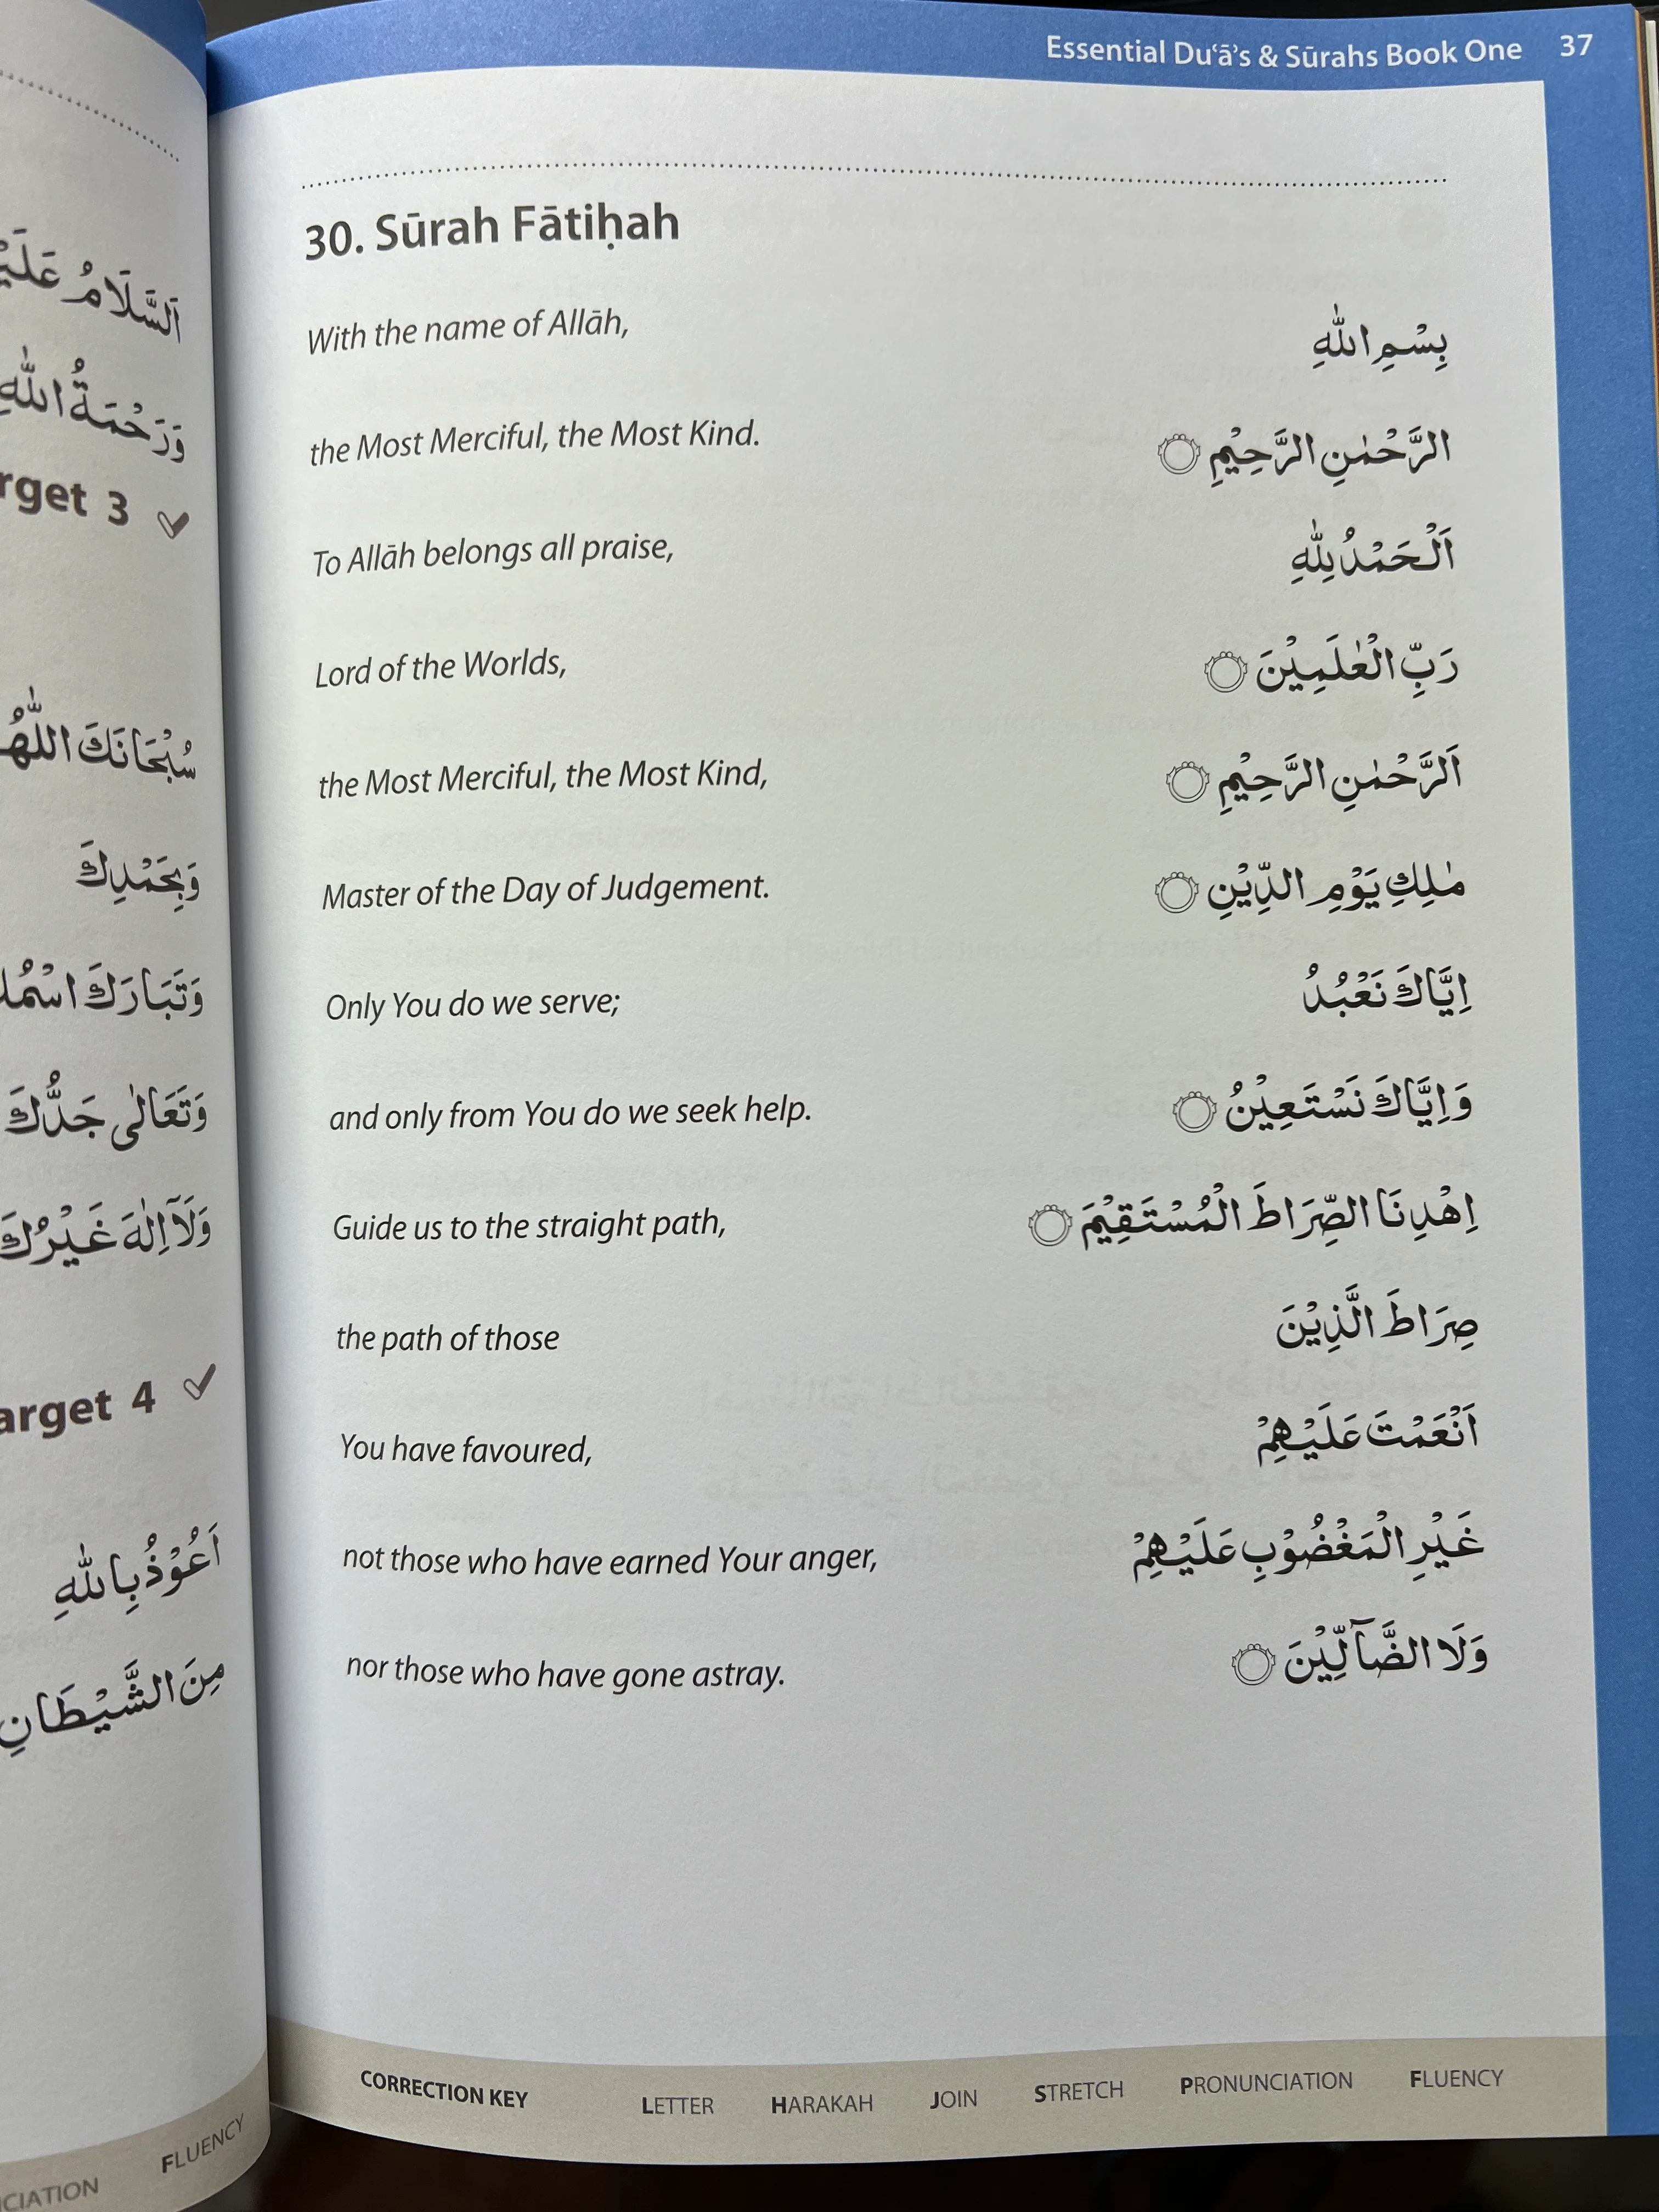 Essential Du‘ā’s & Sūrahs Book One 37
30. Sūrah Fātiḥah
With the name of Allāh, بِسْمِ اللّٰهِ
the Most Merciful, the Most Kind. الرَّحْمٰنِ الرَّحِيْمِ ۝
To Allāh belongs all praise, اَلْحَمْدُ لِلّٰهِ
Lord of the Worlds, رَبِّ الْعٰلَمِيْنَ ۝
the Most Merciful, the Most Kind, اَلرَّحْمٰنِ الرَّحِيْمِ ۝
Master of the Day of Judgement. مٰلِكِ يَوْمِ الدِّيْنِ ۝
Only You do we serve; اِيَّاكَ نَعْبُدُ
and only from You do we seek help. وَاِيَّاكَ نَسْتَعِيْنُ ۝
Guide us to the straight path, اِهْدِنَا الصِّرَاطَ الْمُسْتَقِيْمَ ۝
the path of those صِرَاطَ الَّذِيْنَ
You have favoured, اَنْعَمْتَ عَلَيْهِمْ
not those who have earned Your anger, غَيْرِ الْمَغْضُوْبِ عَلَيْهِمْ
nor those who have gone astray. وَلَا الضَّآلِّيْنَ ۝
CORRECTION KEY LETTER HARAKAH JOIN STRETCH PRONUNCIATION FLUENCY
اَلسَّلَامُ
وَرَحْمَةُ اللّٰهِ
3
سُبْحَانَكَ
وَبِحَمْدِكَ
وَتَبَارَكَ
وَتَعَالٰى جَدُّكَ
وَلَآ اِلٰهَ غَيْرُكَ
4
اَعُوْذُ بِاللّٰهِ
مِنَ الشَّيْطَانِ
FLUENCY